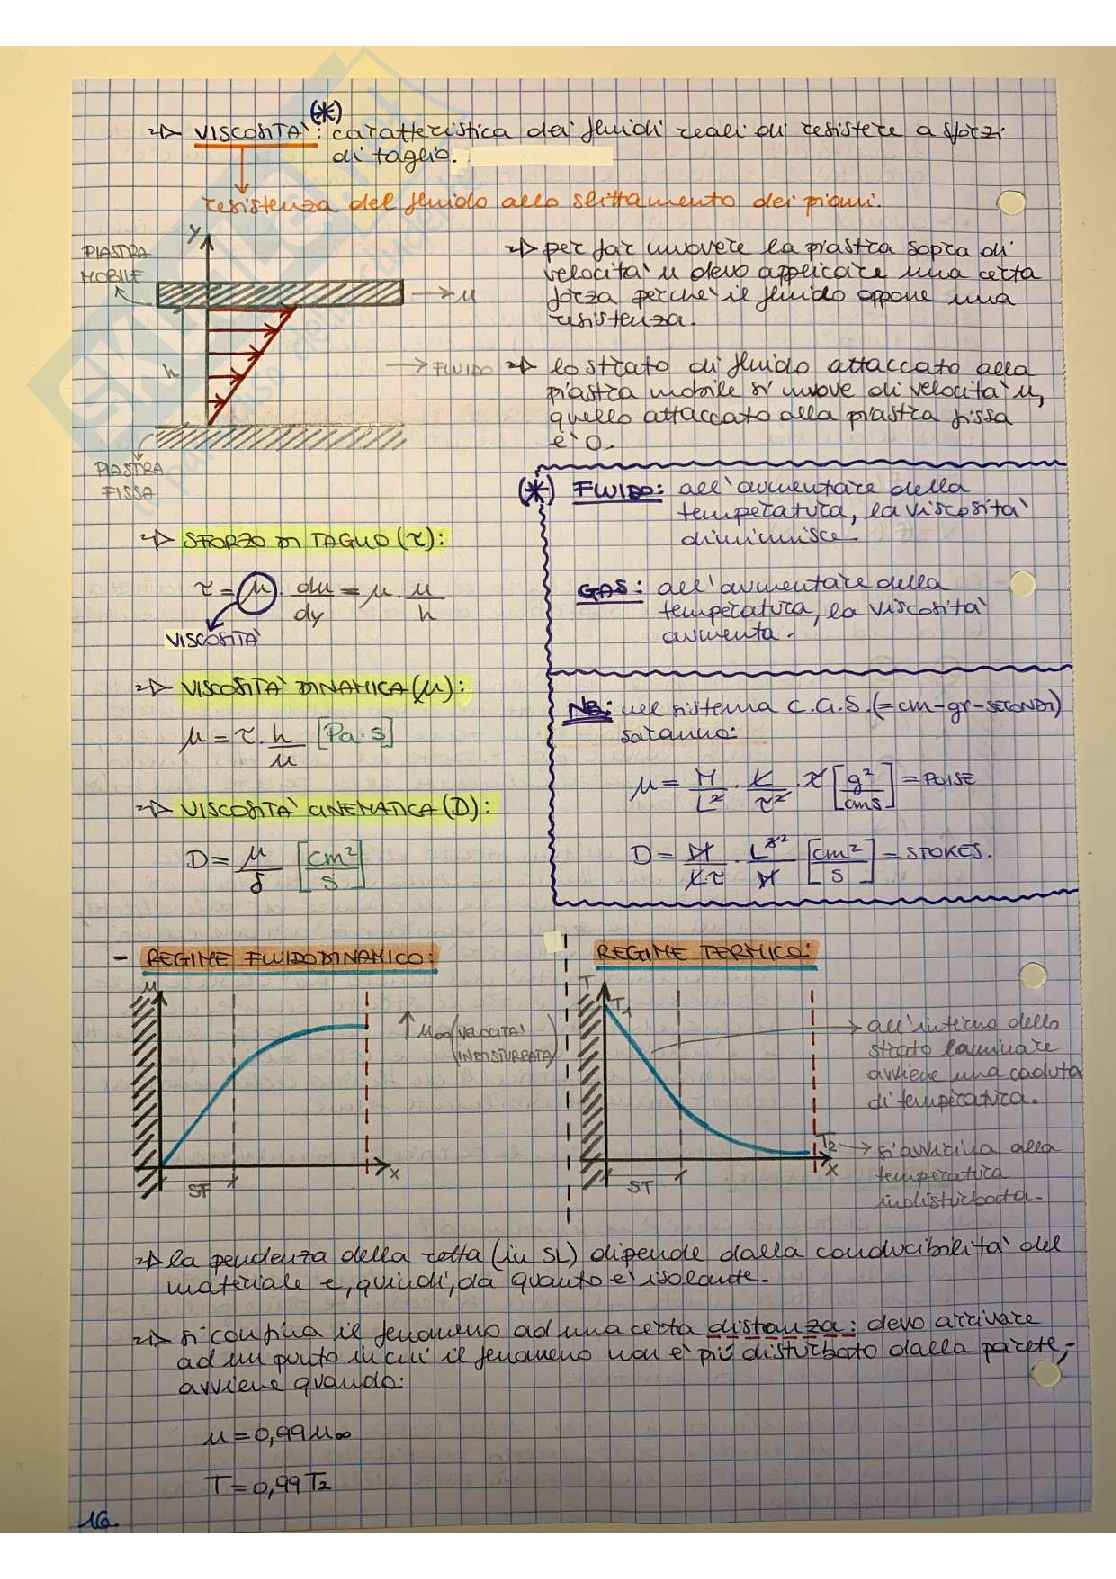 (*)
→ VISCOSITA': caratteristica dei fluidi reali di resistere a sforzi
di taglio.
resistenza del fluido allo slittamento dei piani.
PIASTRA
MOBILE
y
→ u
h
→ FLUIDO
PIASTRA
FISSA
→ per far muovere la piastra sopra di
velocita' u devo applicare una certa
forza perche' il fluido oppone una
resistenza.
→ lo strato di fluido attaccato alla
piastra mobile si muove di velocita' u,
quello attaccato alla piastra fissa
e' 0.
(*) FLUIDO: all'aumentare della
temperatura, la viscosita'
diminuisce.
GAS: all'aumentare della
temperatura, la viscosita'
aumenta.
→ SFORZO DI TAGLIO (τ):
τ = μ · du/dy = μ · u/h
VISCOSITA'
→ VISCOSITA' DINAMICA (μ):
μ = τ · h/u [Pa·s]
→ VISCOSITA' CINEMATICA (D):
D = μ/δ [cm²/s]
NB: nel sistema C.G.S. (=cm-gr-SECONDI)
saranno:
μ = M/L² · L/τ² · τ [g²/cms] = POISE
D = M/Lτ · L³²/M [cm²/s] = STOKES.
- REGIME FLUIDODINAMICO:
u
↑ u∞ (VELOCITA'
INDISTURBATA)
x
SF
REGIME TERMICO:
T
T1
→ all'interno dello
strato laminare
avviene una caduta
di temperatura.
T2 → si avvicina alla
temperatura
indisturbata.
x
ST
→ la pendenza della retta (in SL) dipende dalla conducibilita' del
materiale e, quindi, da quanto e' isolante.
→ si confina il fenomeno ad una certa distanza: devo arrivare
ad un punto in cui il fenomeno non e' più disturbato dalla parete,
avviene quando:
u = 0,99 u∞
T = 0,99 T2
16